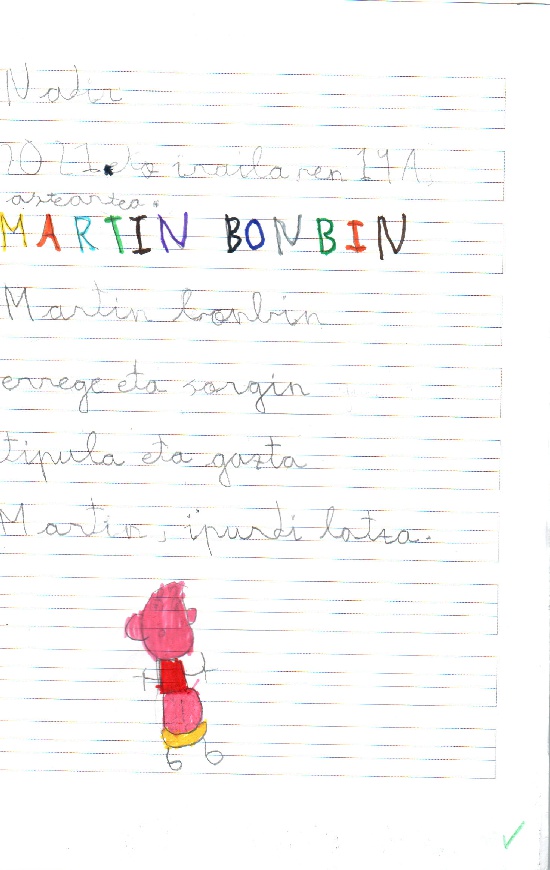 Nadir
2021.eko irailaren 14A,
asteartea.
MARTIN BONBIN
Martin bonbin
errege eta sorgin
tipula eta gazta
Martin, ipurdi latza.